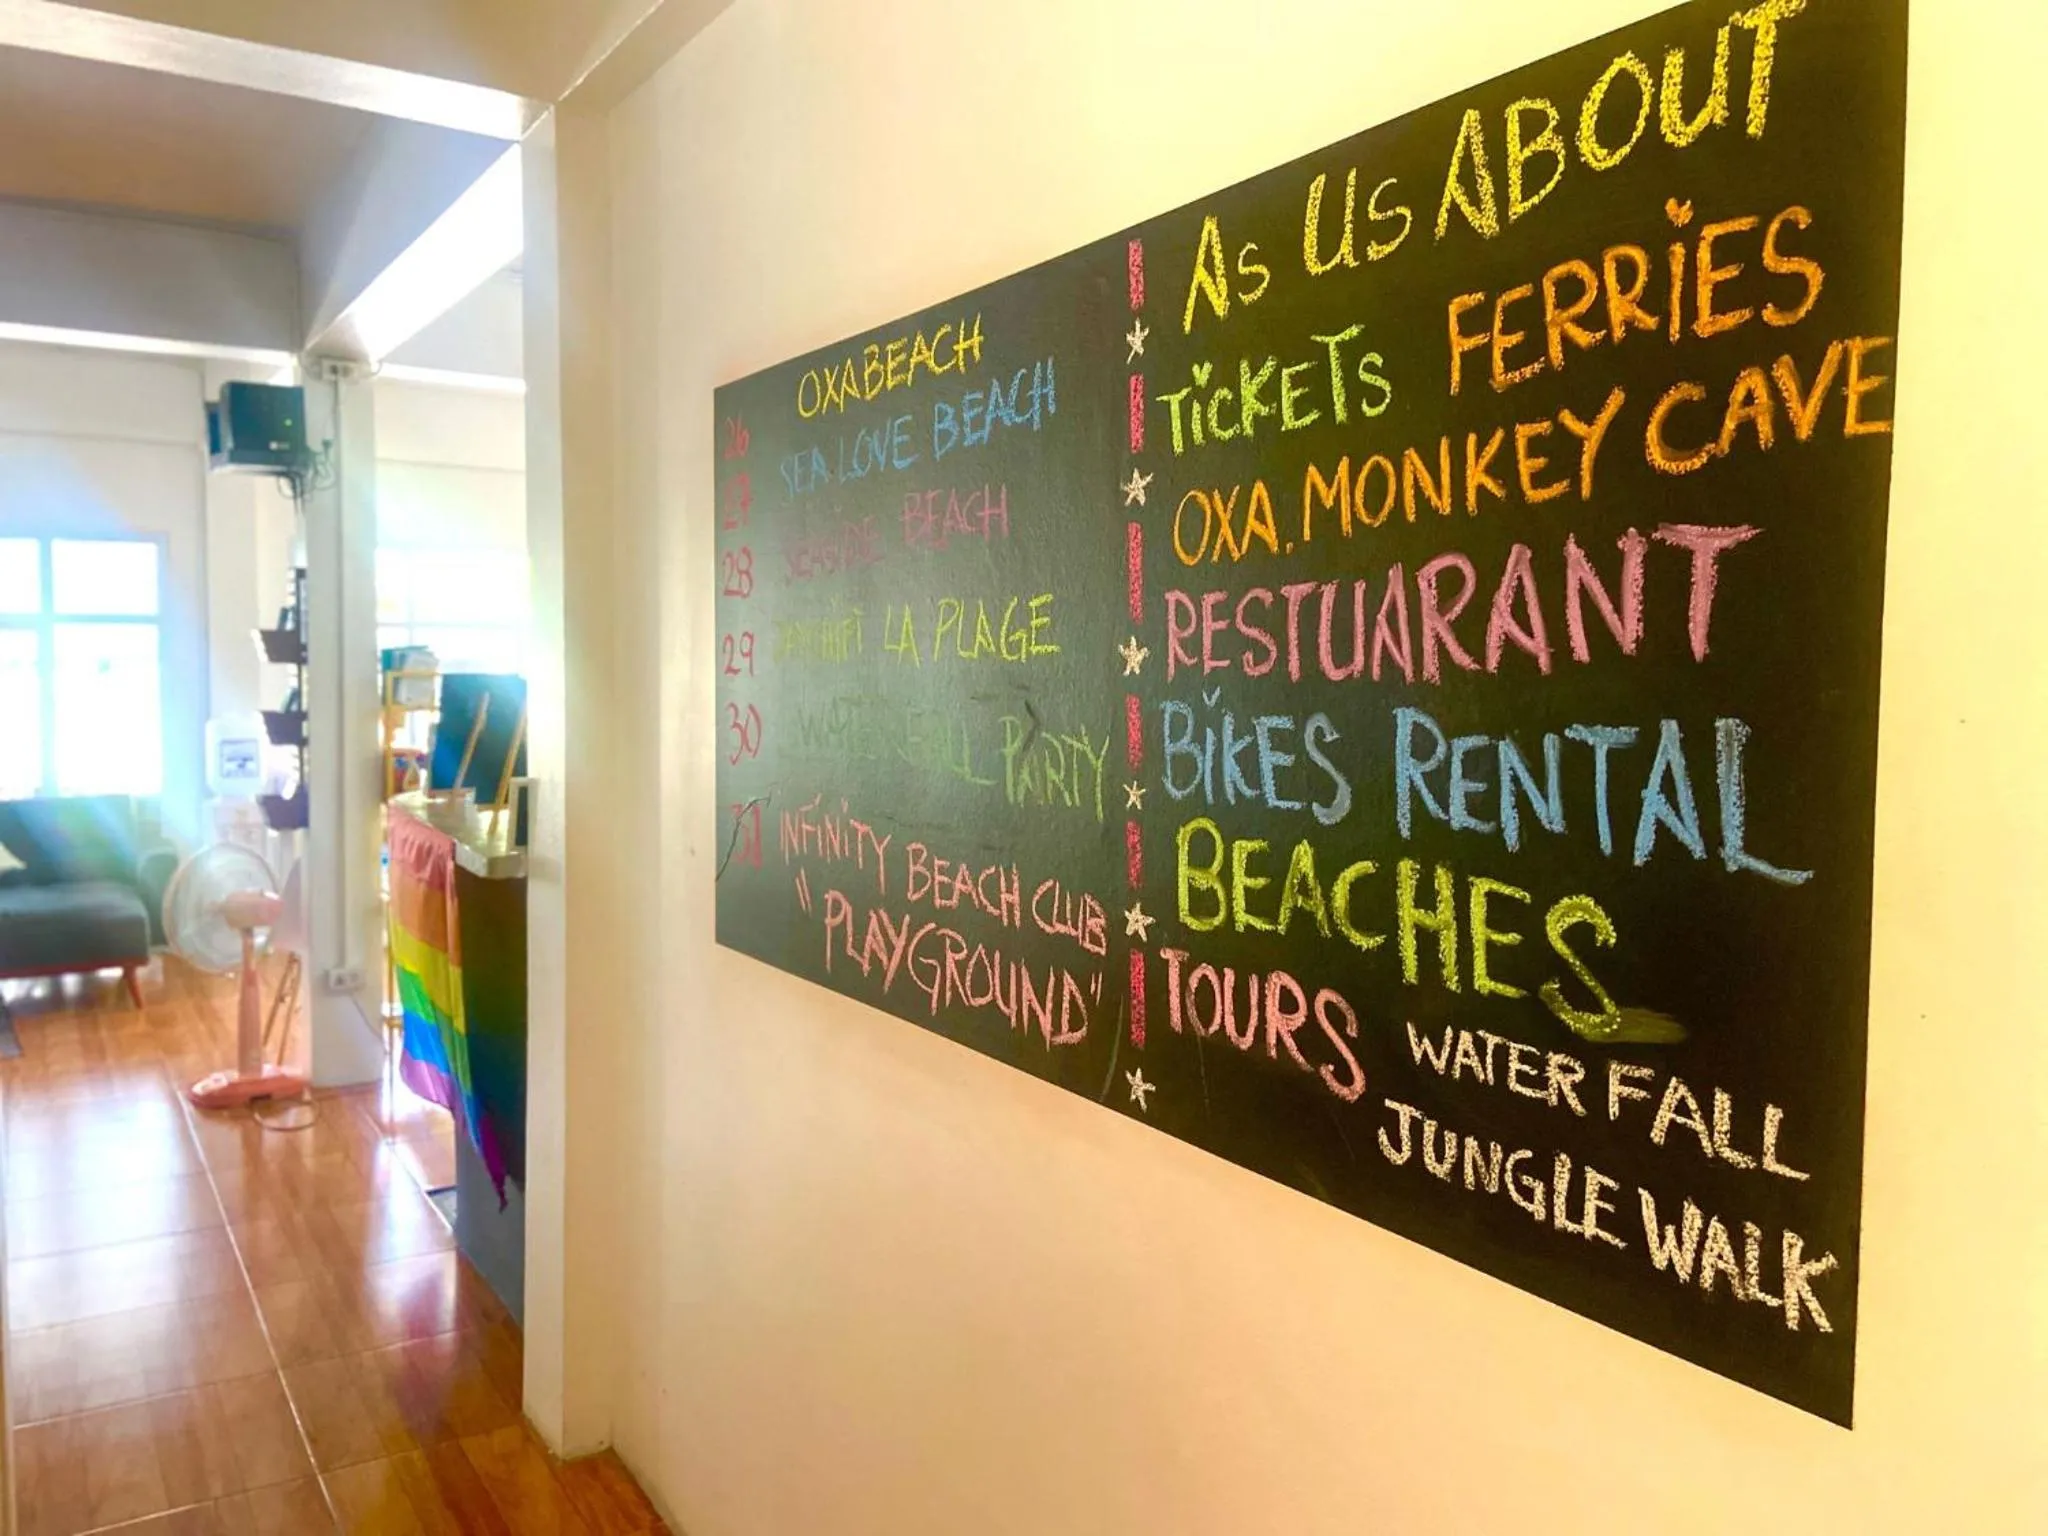 26 OXABEACH
27 SEA LOVE BEACH
28 SEASIDE BEACH
29 LA PLAGE
30 WATERFALL PARTY
31 INFINITY BEACH CLUB
"PLAYGROUND"
AS US ABOUT
TICKETS FERRIES
OXA. MONKEY CAVE
RESTUARANT
BIKES RENTAL
BEACHES
TOURS WATER FALL
JUNGLE WALK